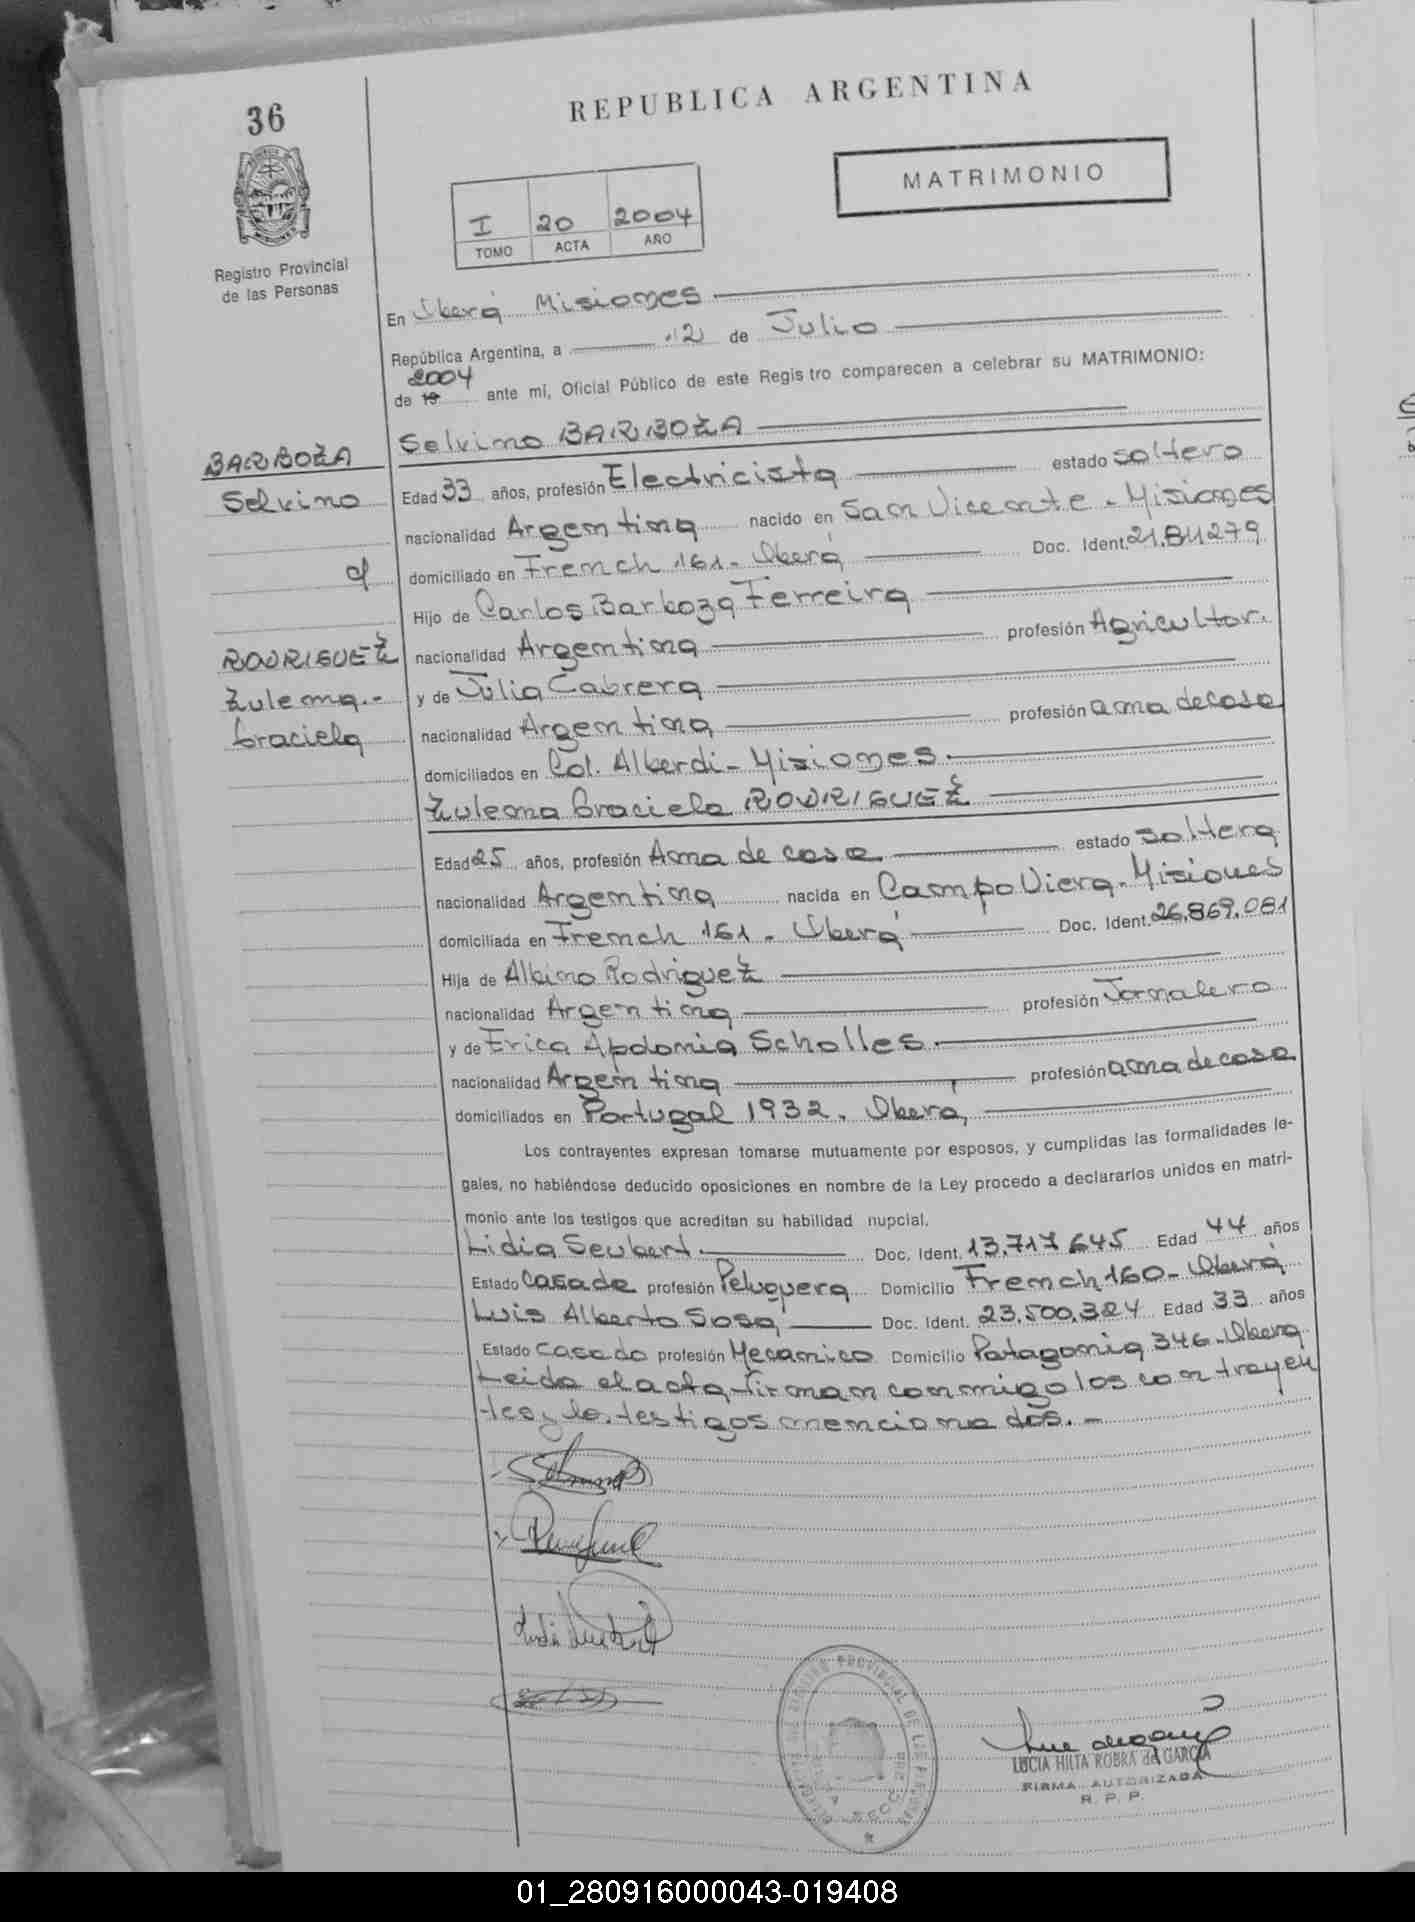 36
REPUBLICA ARGENTINA
MATRIMONIO
I 20 2004
TOMO ACTA AÑO
Registro Provincial
de las Personas
En Oberá Misiones
República Argentina, a 12 de Julio
2004
de 19 ante mí, Oficial Público de este Registro comparecen a celebrar su MATRIMONIO:
Selvino BARBOZA
BARBOZA
Selvino
c/
RODRIGUEZ
Zulema.-
Graciela
Edad 33 años, profesión Electricista estado soltero
nacionalidad Argentina nacido en San Vicente - Misiones
domiciliado en French 161 - Oberá Doc. Ident. 21.811.279
Hijo de Carlos Barboza Ferreira
nacionalidad Argentina profesión Agricultor.
y de Julia Cabrera
nacionalidad Argentina profesión ama de casa
domiciliados en Col. Alberdi - Misiones
Zulema Graciela RODRIGUEZ
Edad 25 años, profesión Ama de casa estado soltera
nacionalidad Argentina nacida en Campo Viera - Misiones
domiciliada en French 161 - Oberá Doc. Ident. 26.869.081
Hija de Albino Rodriguez
nacionalidad Argentina profesión Jornalero
y de Erica Apdomia Scholles
nacionalidad Argentina profesión ama de casa
domiciliados en Portugal 1932. Oberá,
Los contrayentes expresan tomarse mutuamente por esposos, y cumplidas las formalidades le-
gales, no habiéndose deducido oposiciones en nombre de la Ley procedo a declararlos unidos en matri-
monio ante los testigos que acreditan su habilidad nupcial.
Lidia Seubert Doc. Ident. 13.717.645 Edad 44 años
Estado Casada profesión Peluquera Domicilio French 160 - Oberá
Luis Alberto Sosa Doc. Ident. 23.500.324 Edad 33 años
Estado Casado profesión Mecanico Domicilio Patagonia 346 - Obera
Leida el acta firman conmigo los contrayen
tes y los testigos mencionados. -
LUCIA HILTA ROBRA de GARCIA
FIRMA AUTORIZADA
R. P. P.
01_280916000043-019408